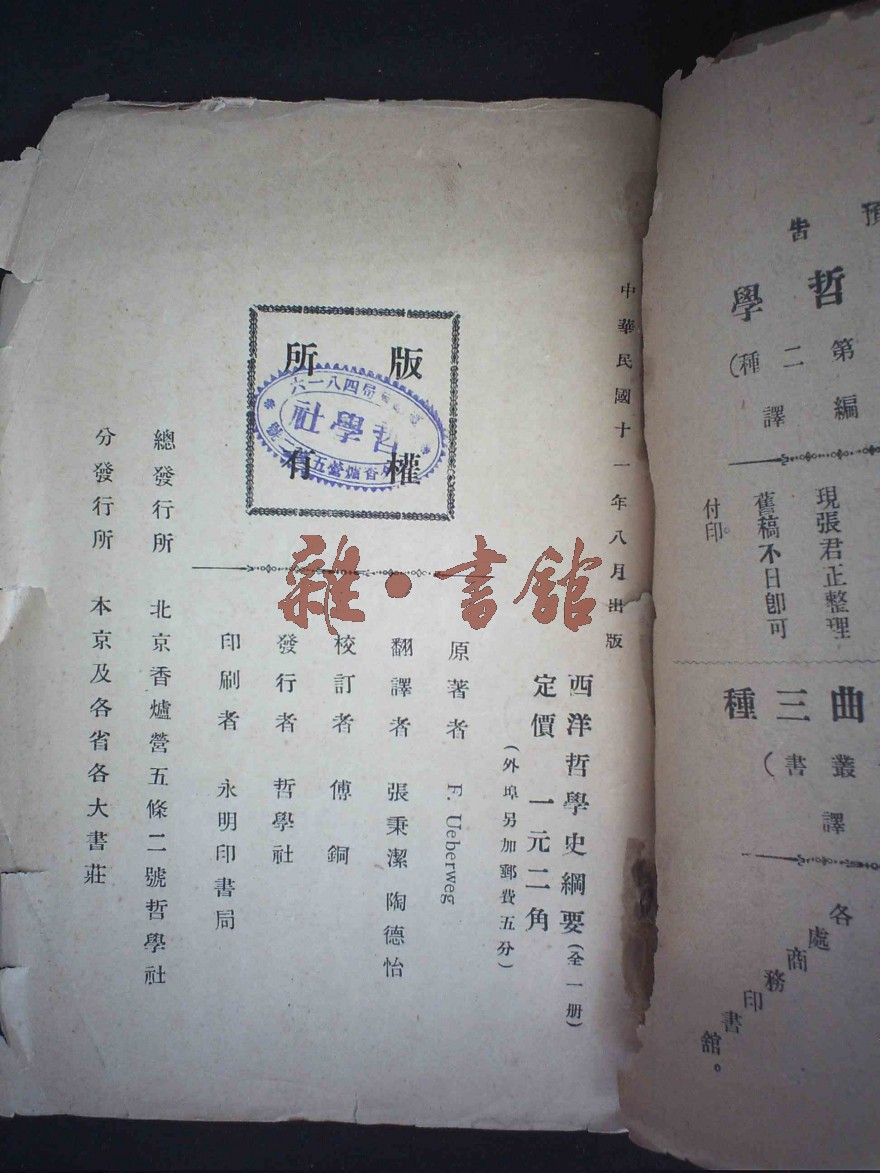 中華民國十一年八月出版
西洋哲學史綱要(全一册)
定價 一元二角
(外埠另加郵費五分)
原著者 F. Ueberweg
翻譯者 張秉潔 陶德怡
校訂者 傅銅
發行者 哲學社
印刷者 永明印書局
總發行所 北京香爐營五條二號哲學社
分發行所 本京及各省各大書莊
版權
所有
六一八四局
哲學社
香爐營五
雜·書館
預告
哲學
(第二種)
編譯
現張君正整理
舊稿不日卽可
付印。
曲三種
叢書)
譯
各處商務印書館。